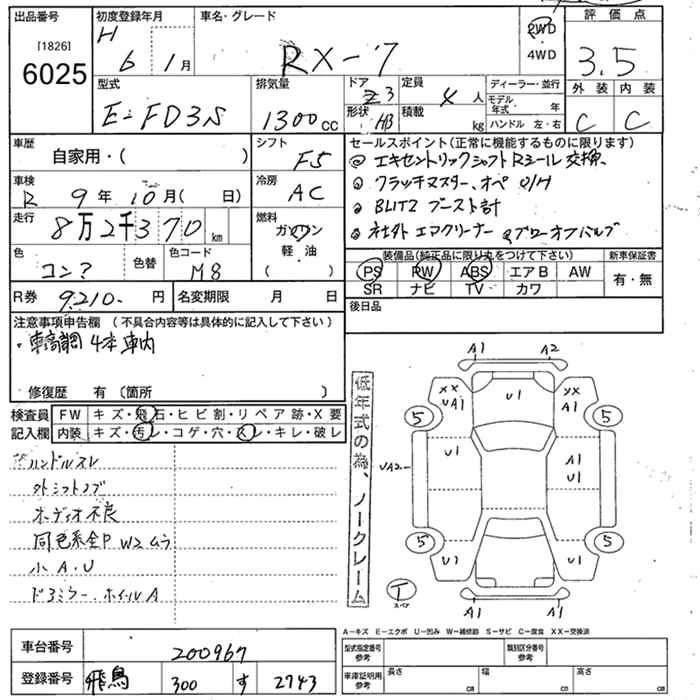 出品番号 初度登録年月 車名・グレード 評価点
[1826] H 6 1月 RX-7 2WD 3.5
6025 4WD
型式 排気量 ドア 定員 ディーラー・並行 外装 内装
E-FD3S 1300cc 3 4人 モデル年式 年 C C
形状 H/B 積載 kg ハンドル 左・右
車歴 シフト セールスポイント(正常に機能するものに限ります)
自家用・( ) F5 エキセントリックシャフトRシール交換、
車検 冷房 クラッチマスター、オペ O/H
R 9年10月( 日) AC BLITZ ブースト計
走行 燃料 社外エアクリーナー ブローオフバルブ
8万2千370km ガソリン 装備品(純正品に限り丸をつけて下さい) 新車保証書
色 色替 色コード 軽・油 PS PW ABS エアB AW 有・無
コン? M8 ( ) SR ナビ TV カワ
R券 9210-円 名変期限 月 日 後日品
注意事項申告欄 (不具合内容等は具体的に記入して下さい)
・車高調4本車内
修復歴 有 (箇所 )
検査員 FW キズ・飛石・ヒビ割・リペア跡・X要
記入欄 内装 キズ・汚レ・コゲ・穴・スレ・キレ・破レ
ハンドルスレ
外シフトノブ
オーディオ不良
同色系全P W2ムラ
小A.U
ドアミラー、ホイールA
低年式の為、ノークレーム
A1 A2
XX UA1 U1 XX A1
5 5
U1 A1 U1
UA2
5 5
U1 U1
T A1 A1
スペア
A-キズ E-エクボ U-凹み W-補修跡 S-サビ C-腐食 XX-交換済
車台番号 200967 型式指定番号 参考 類別区分番号 参考
登録番号 飛鳥 300 す 2743 車庫証明用 参考 長さ cm 幅 cm 高さ cm